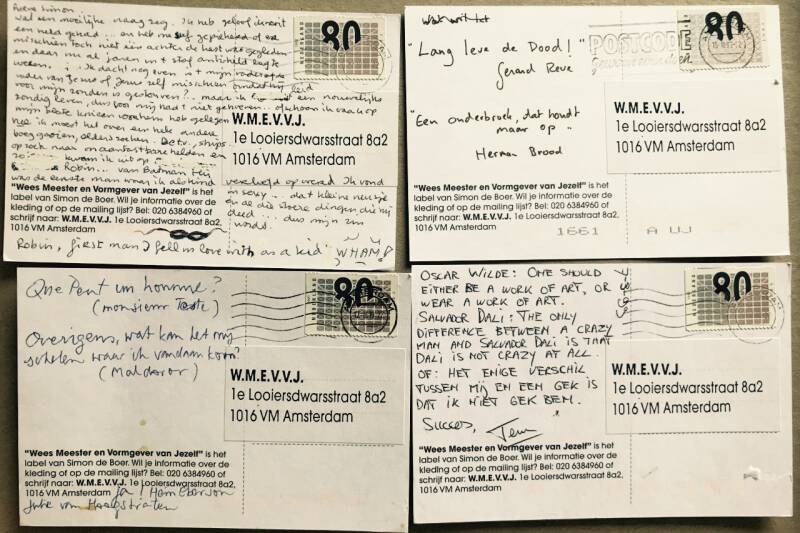 Beste Simon.
wat een moeilijke vraag zeg. Ik heb geloof ik nooit
een held gehad...
misschien toch niet één achter de kast was gegleden
en daar nu al jaren in t stof
wezen, : Ik dacht nog even
of Jezus zelf misschien omdat hij
voor mijn zonden is gestorven? maar ik
zondig leven, dus voor mij had t niet gehoeven.
mijn blote knieën voor hem heb gelegen
Nee ik moet het over een hele andere
boeg gooien, De tv, strips
op zoek naar onaantastbare helden en
zo kwam ik uit op
Robin... van Batman. Hij
was de eerste man waar ik als kind
verliefd op werd. Ik vond
m sexy... dat kleine neusje
en al die stoere dingen die hij
deed... dus mijn
Robin, first man I fell in love with as a kid WHAM!
80
NEDERLAND
W.M.E.V.V.J.
1e Looiersdwarsstraat 8a2
1016 VM Amsterdam
"Wees Meester en Vormgever van Jezelf" is het
label van Simon de Boer. Wil je informatie over de
kleding of op de mailing lijst? Bel: 020 6384960 of
schrijf naar: W.M.E.V.V.J. 1e Looiersdwarsstraat 8a2,
1016 VM Amsterdam
"Lang leve de Dood!"
Gerard Reve
"Een onderbroek, dat houdt
maar op"
Herman Brood
POSTCODE
80
W.M.E.V.V.J.
1e Looiersdwarsstraat 8a2
1016 VM Amsterdam
"Wees Meester en Vormgever van Jezelf" is het
label van Simon de Boer. Wil je informatie over de
kleding of op de mailing lijst? Bel: 020 6384960 of
schrijf naar: W.M.E.V.V.J. 1e Looiersdwarsstraat 8a2,
1016 VM Amsterdam
1661
Que Peut un homme?
(monsieur Teste)
Overigens, wat kan het mij
schelen waar ik vandaan kom?
(Maldoror)
80
NEDERLAND
W.M.E.V.V.J.
1e Looiersdwarsstraat 8a2
1016 VM Amsterdam
"Wees Meester en Vormgever van Jezelf" is het
label van Simon de Boer. Wil je informatie over de
kleding of op de mailing lijst? Bel: 020 6384960 of
schrijf naar: W.M.E.V.V.J. 1e Looiersdwarsstraat 8a2,
1016 VM Amsterdam
OSCAR WILDE: ONE SHOULD
EITHER BE A WORK OF ART, OR
WEAR A WORK OF ART.
SALVADOR DALI: THE ONLY
DIFFERENCE BETWEEN A CRAZY
MAN AND SALVADOR DALI IS THAT
DALI IS NOT CRAZY AT ALL.
OF: HET ENIGE VERSCHIL
TUSSEN MIJ EN EEN GEK IS
DAT IK NIET GEK BEN.
SUCCES,
80
NEDERLAND
W.M.E.V.V.J.
1e Looiersdwarsstraat 8a2
1016 VM Amsterdam
"Wees Meester en Vormgever van Jezelf" is het
label van Simon de Boer. Wil je informatie over de
kleding of op de mailing lijst? Bel: 020 6384960 of
schrijf naar: W.M.E.V.V.J. 1e Looiersdwarsstraat 8a2,
1016 VM Amsterdam